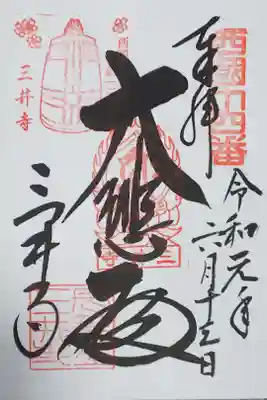 奉拝
西国十四番
令和元年
六月十三日
大悲殿
三井寺
三井寺